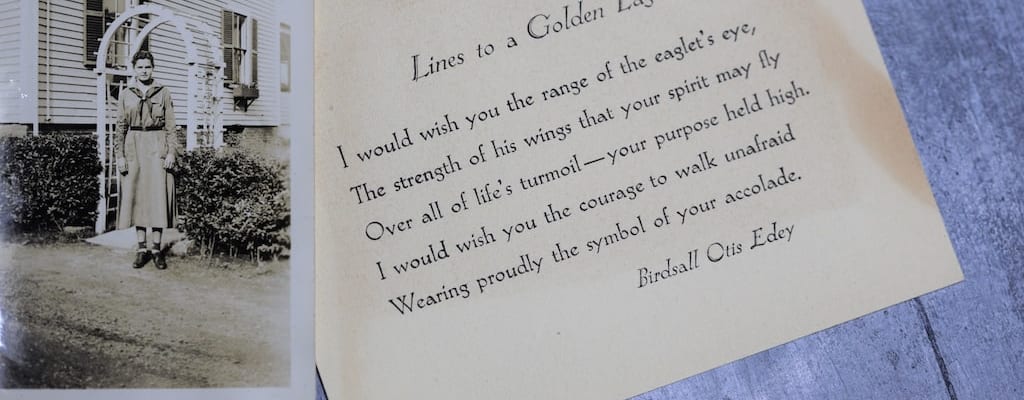 Lines to a Golden
I would wish you the range of the eaglet's eye,
The strength of his wings that your spirit may fly
Over all of life's turmoil—your purpose held high.
I would wish you the courage to walk unafraid
Wearing proudly the symbol of your accolade.
Birdsall Otis Edey